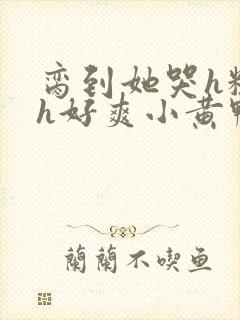 脔到她哭h粗
h好爽小黄鸭
蘭蘭不喫鱼